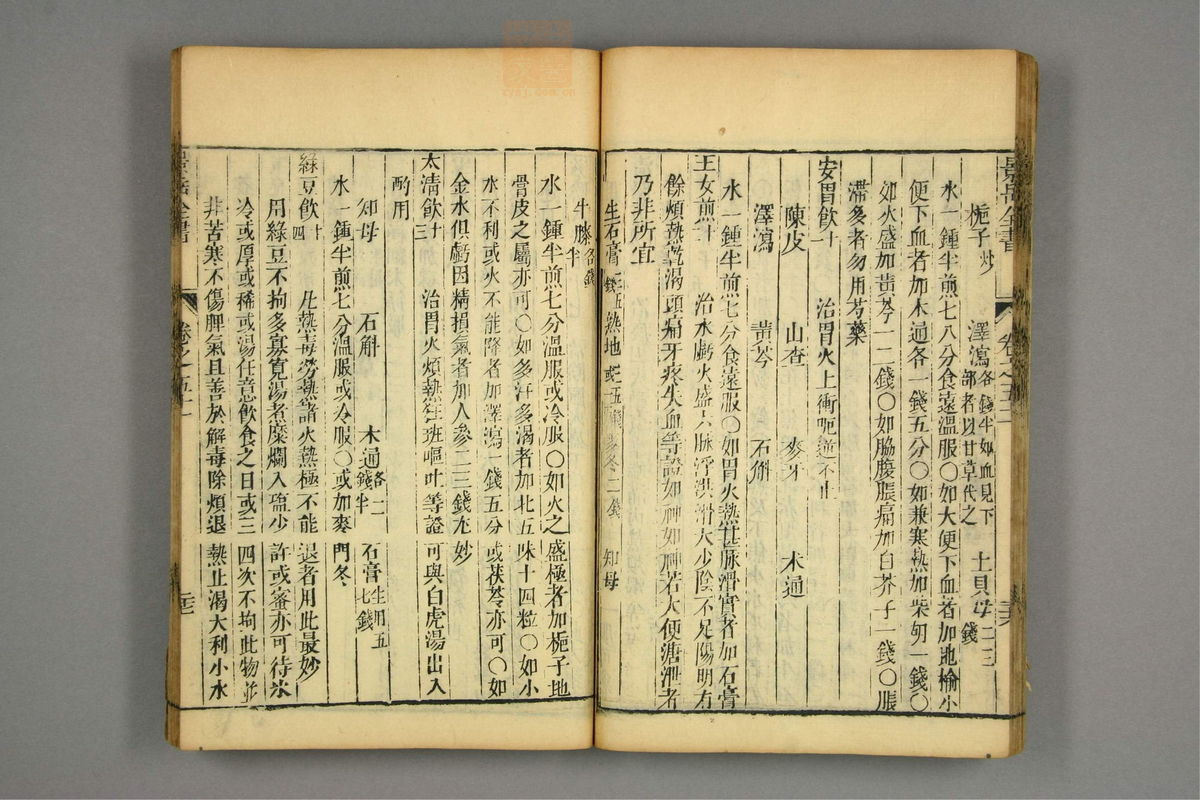 景岳全書 卷之五十一
梔子炒 澤瀉各錢半如血見下部者以甘草代之 土貝母二三錢
水一鍾半煎七八分食遠溫服〇如大便下血者加地榆小
便下血者加木通各一錢五分〇如兼寒熱加柴胡一錢〇
如火盛加黃芩一二錢〇如脇腹脹痛加白芥子一錢〇脹
滯多者勿用芍藥
安胃飲十一 治胃火上衝呃逆不止
陳皮 山查 麥牙 木通
澤瀉 黃芩 石斛
水一鍾半煎七分食遠服〇如胃火熱甚脉滑實者加石膏
玉女煎十二 治水虧火盛六脉浮洪滑大少陰不足陽明有
餘煩熱乾渴頭痛牙疼失血等證如神如神若大便溏泄者
乃非所宜
生石膏三五錢 熟地三五錢或一兩 麥冬二錢 知母
牛膝各錢半
水一鍾半煎七分溫服或冷服〇如火之盛極者加梔子地
骨皮之屬亦可〇如多汗多渴者加北五味十四粒〇如小
水不利或火不能降者加澤瀉一錢五分或茯苓亦可〇如
金水俱虧因精損氣者加人參二三錢尤妙
太清飲十三 治胃火煩熱狂斑嘔吐等證可與白虎湯出入
酌用
知母 石斛 木通各一錢半 石膏生用五七錢
水一鍾半煎七分溫服或冷服〇或加麥門冬
綠豆飲十四 凡熱毒勞熱諸火熱極不能退者用此最妙
用綠豆不拘多寡寬湯煮糜爛入鹽少許或蜜亦可待氷
冷或厚或稀或湯任意飲食之日或三四次不拘此物並
非苦寒不傷脾氣且善於解毒除煩退熱止渴大利小水
景岳全書 卷之五十一